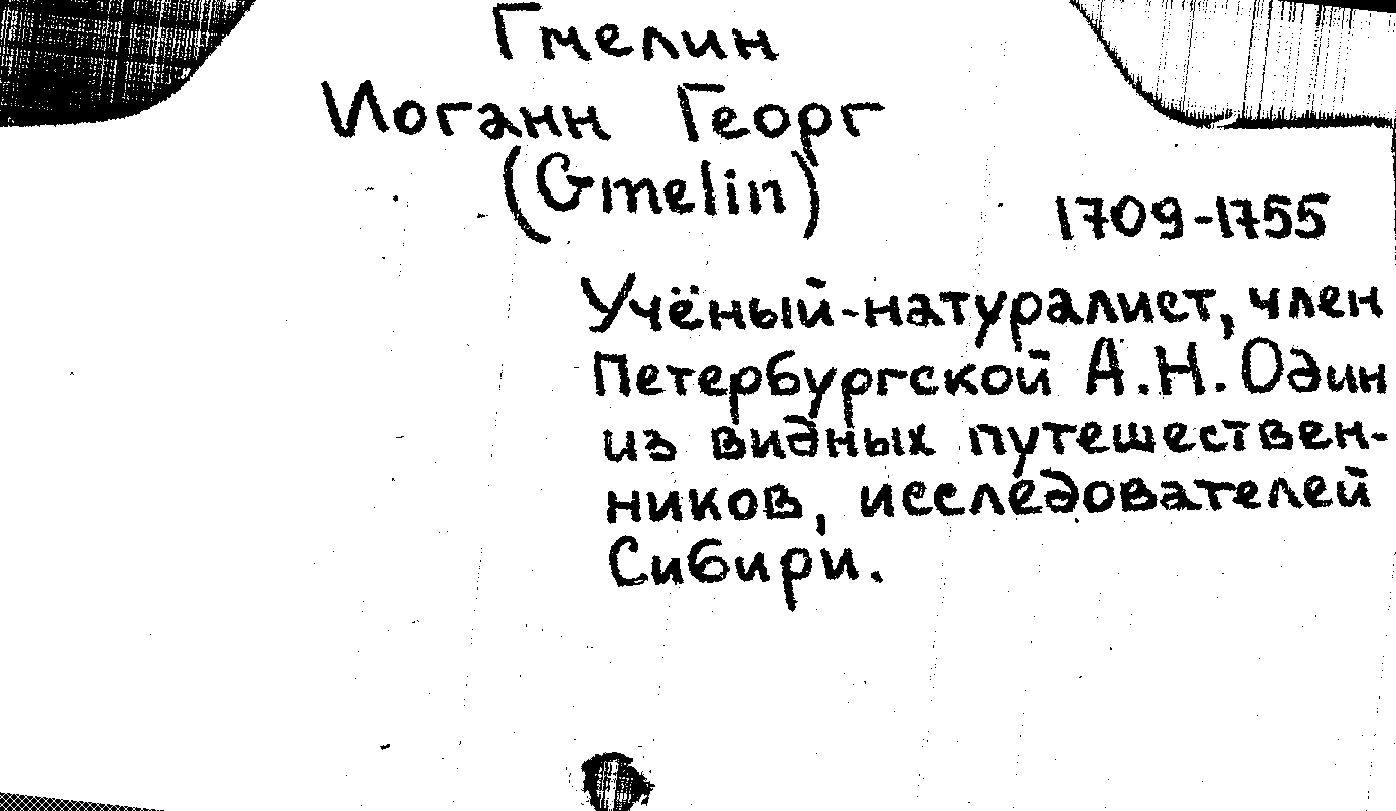 Гмелин
Иоганн Георг
(Gmelin)
1709-1755
Учёный-натуралист, член
Петербургской А.Н. Один
из видных путешествен-
ников, исследователей
Сибири.